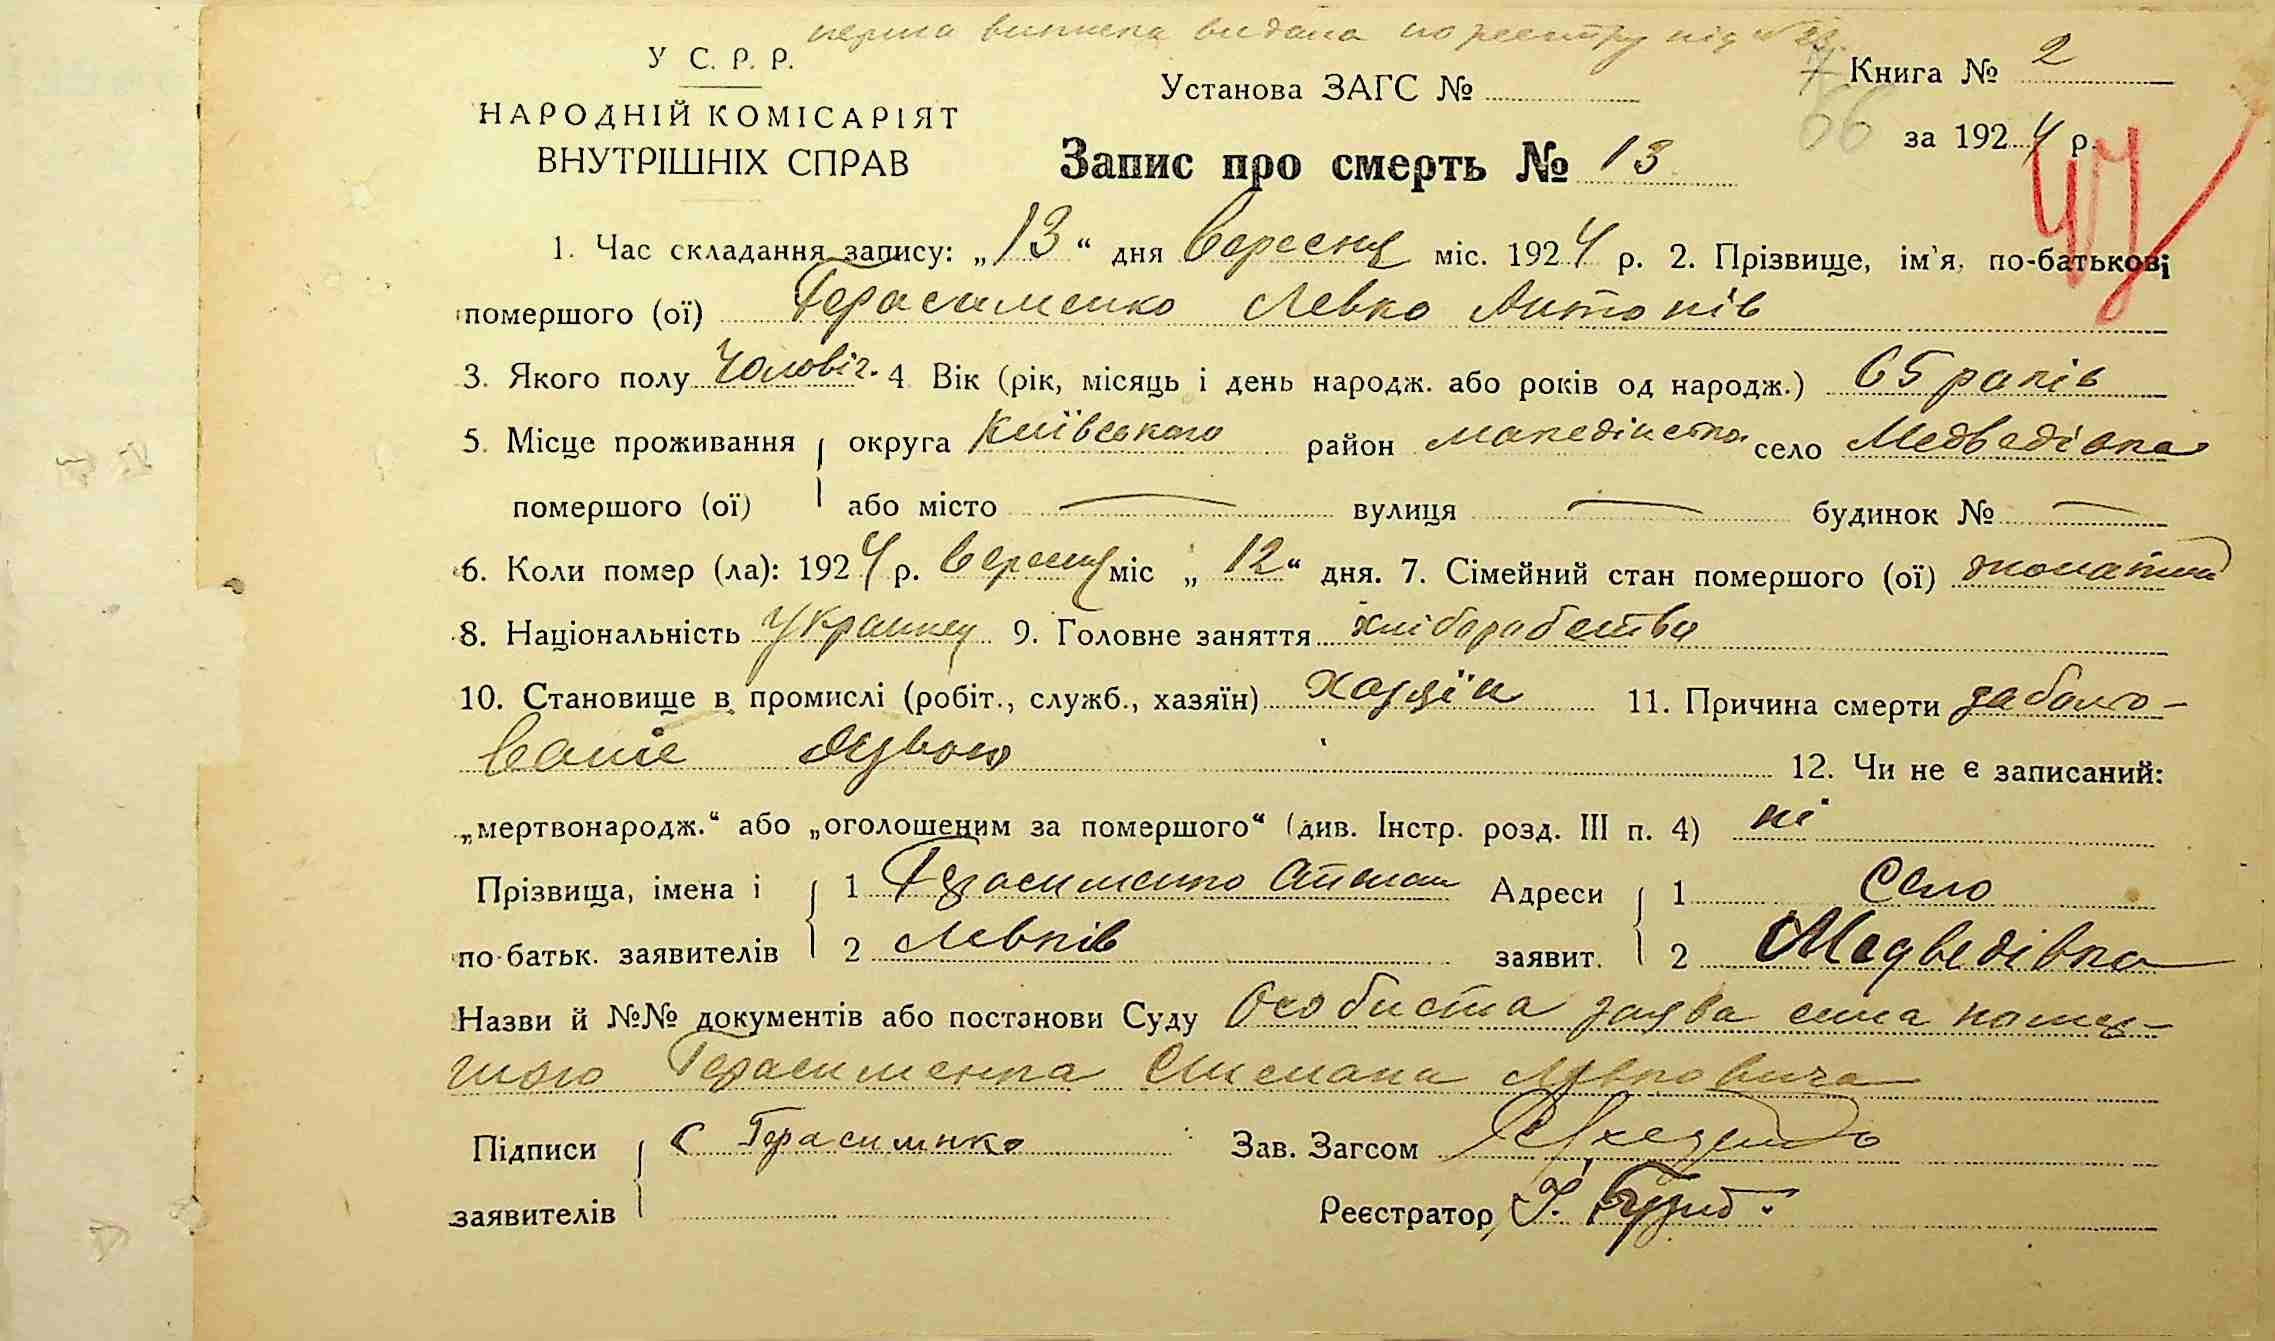 перша виписка видана по реєстру під № 23.
У С. Р. Р.
Установа ЗАГС №
Книга № 2
НАРОДНІЙ КОМІСАРІЯТ
ВНУТРІШНІХ СПРАВ
66
за 1924 р.
47
Запис про смерть № 13
1. Час складання запису: „13“ дня вересня міс. 1924 р. 2. Прізвище, ім'я, по-батькові
помершого (ої) Герасименко Левко Антонів
3. Якого полу Чоловіч. 4 Вік (рік, місяць і день народж. або років од народж.) 65 років
5. Місце проживання округа Київського район село Медведівка
помершого (ої) або місто — вулиця — будинок № —
6. Коли помер (ла): 1924 р. вересня міс „12“ дня. 7. Сімейний стан помершого (ої) жонатий
8. Національність Украинец 9. Головне заняття хліборобство
10. Становище в промислі (робіт., служб., хазяїн) хозяїн 11. Причина смерти заболю-
ваніе язвою 12. Чи не є записаний:
„мертвонародж.“ або „оголошеним за помершого“ (див. Інстр. розд. III п. 4) ні
Прізвища, імена і 1 Герасименко Адреси 1 Село
по-батьк. заявителів 2 Левків заявит. 2 Медведівка
Назви й №№ документів або постанови Суду Особиста заява сина помер-
шого Герасименка Левковича
Підписи С Герасимнко Зав. Загсом
заявителів Реєстратор